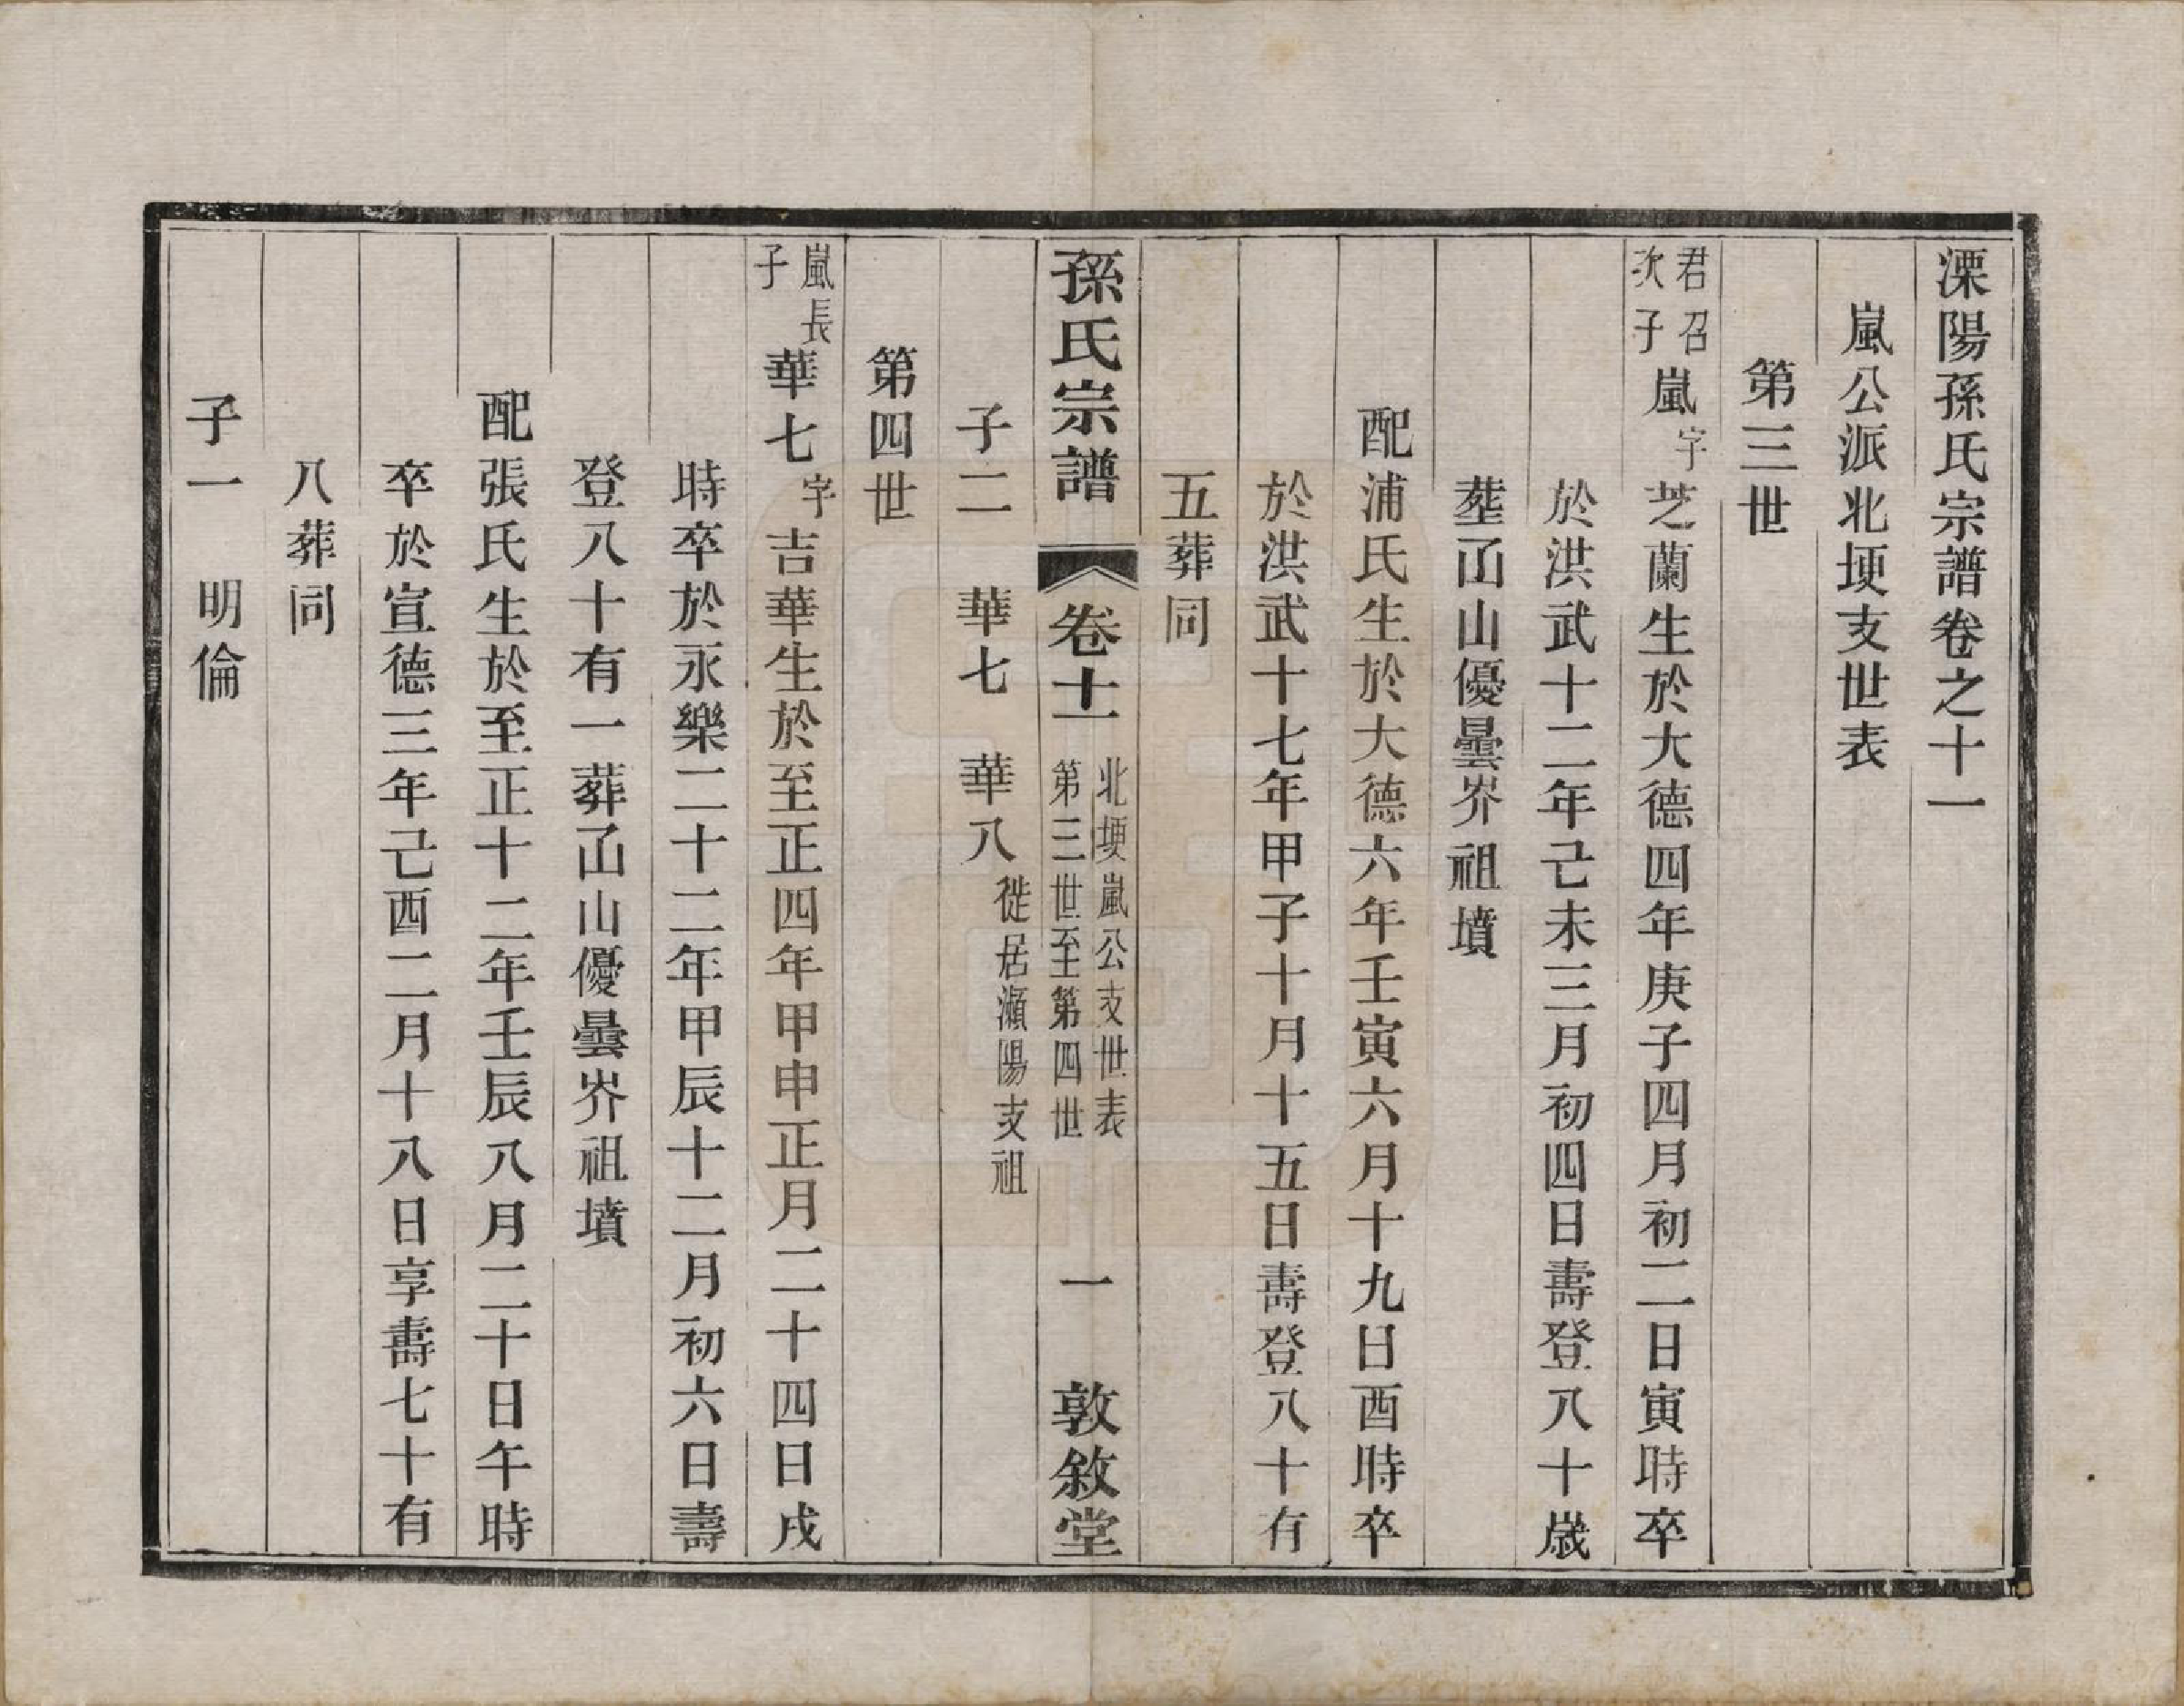 溧陽孫氏宗譜卷之十一
嵐公派北埂支世表
第三世
君召次子嵐字芝蘭生於大德四年庚子四月初二日寅時卒
於洪武十二年己未三月初四日壽登八十歲
塟屲山優曇岕祖墳
配浦氏生於大德六年壬寅六月十九日酉時卒
於洪武十七年甲子十月十五日壽登八十有
五葬同
孫氏宗譜 卷十一 北埂嵐公支世表 第三世至第四世 一 敦敘堂
子二 華七 華八徙居瀨陽支祖
第四世
嵐長子華七字吉華生於至正四年甲申正月二十四日戌
時卒於永樂二十二年甲辰十二月初六日壽
登八十有一葬屲山優曇岕祖墳
配張氏生於至正十二年壬辰八月二十日午時
卒於宣德三年己酉二月十八日享壽七十有
八葬同
子一 明倫